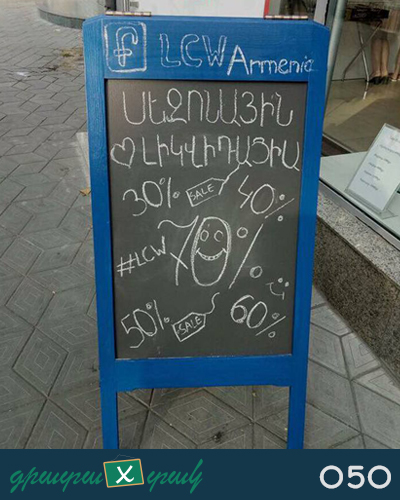 f LCW Armenia
ՍԵԶՈՆԱՅԻՆ
ԼԻԿՎԻԴԱՑԻԱ
30% SALE 40%
#LCW 70%
50% SALE 60%
գրատախտակ
050